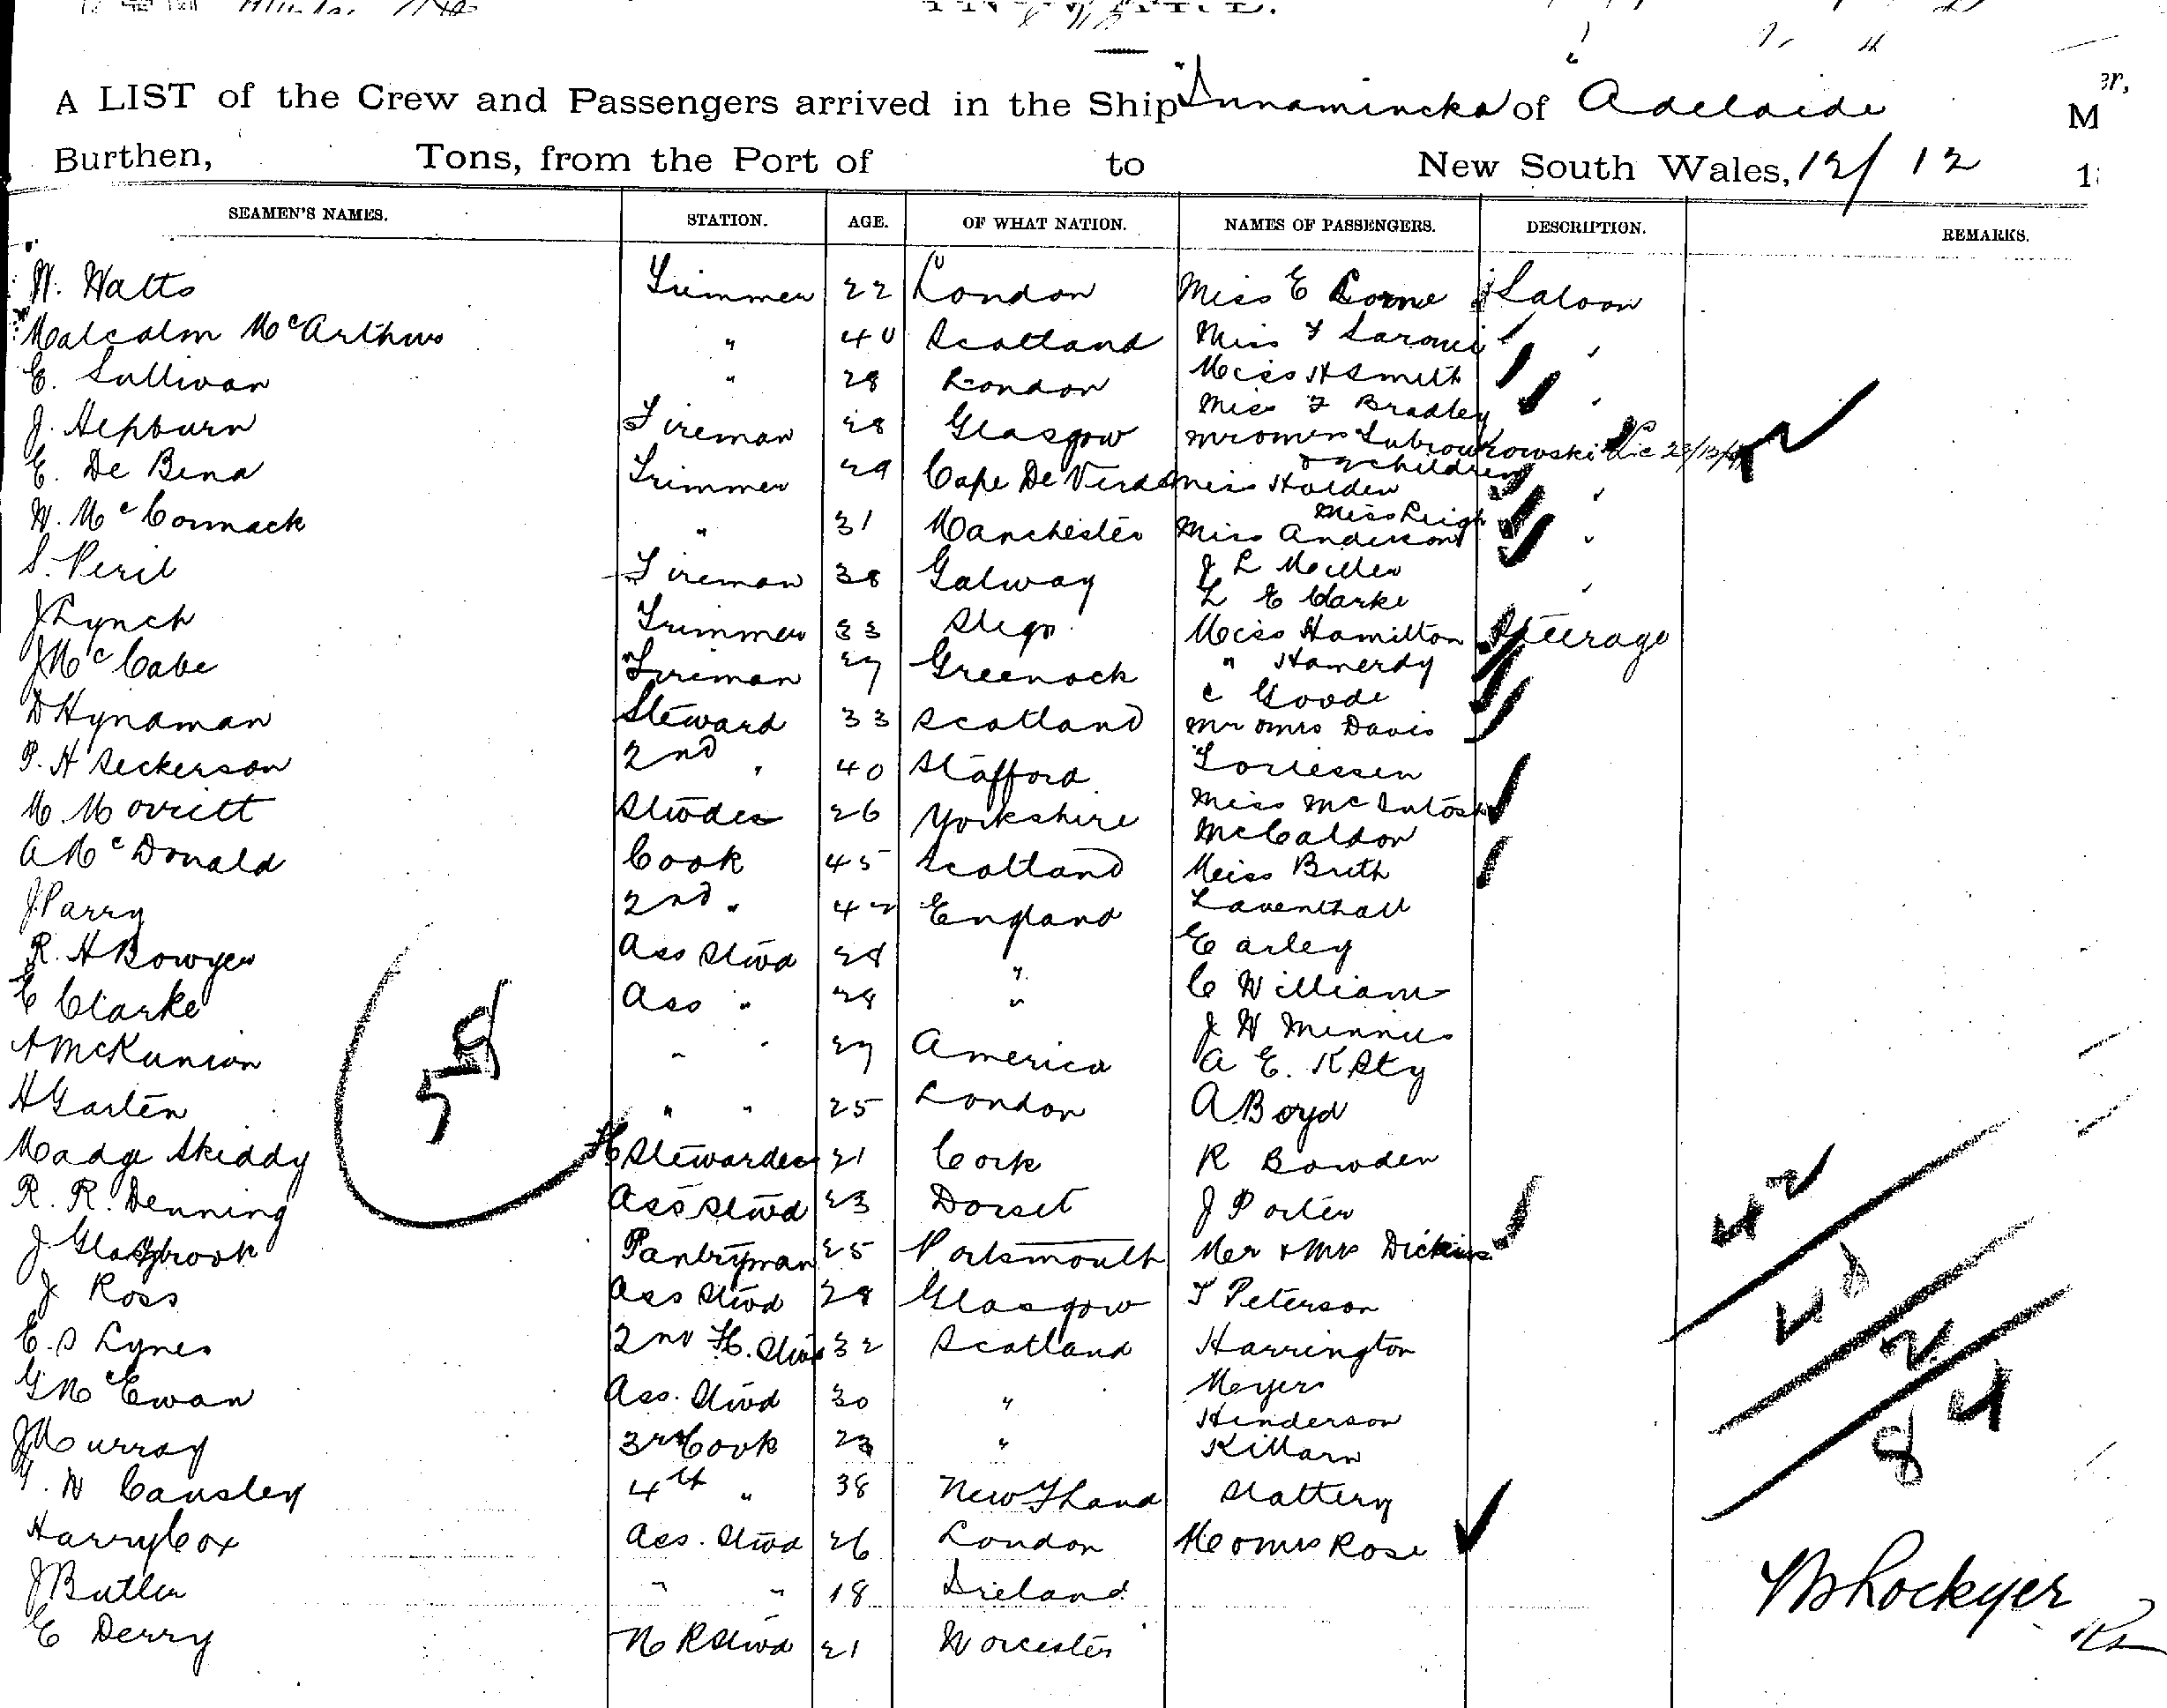 A LIST of the Crew and Passengers arrived in the Ship "Innamincka of Adelaide
Burthen, Tons, from the Port of to New South Wales, 12/12
SEAMEN'S NAMES. STATION. AGE. OF WHAT NATION. NAMES OF PASSENGERS. DESCRIPTION. REMARKS.
W. Watts Trimmer 22 London Miss E Lorne Saloon
Malcolm McArthur " 40 Scotland Miss F Saroni "
E. Sullivan " 28 London Miss H Smith
J. Hepburn Fireman 28 Glasgow Miss F Bradley "
Mr & Mrs
E. De Bena Trimmer 29 Cape De Verde & 2 children
Miss Holden "
W. McCormack " 31 Manchester Miss Leigh
Miss Anderson "
S. Peril Fireman 38 Galway J L Miller
L E Clarke "
J Lynch Trimmer 33 Sligo Miss Hamilton Steerage
J McCabe Fireman 27 Greenock " Hamerdy
C Goode
D Hyndman Steward 33 Scotland Mr & Mrs Davis
P. H Seckerson 2nd " 40 Stafford
M Morritt Stwdess 26 Yorkshire Miss McIntosh
McCaldon
A McDonald Cook 45 Scotland Miss Brith
J. Parry 2nd " 42 England Laventhall
R. H Bowyer Ass Stwd 28 " Earley
E Clarke Ass " 28 " C Williams
J W Minnis
A McKunion " " 27 America A E.
H Garten " " 25 London A Boyd
Madge Skiddy Stewardess 21 Cork R Bowden
R. R. Denning Ass Stwd 23 Dorset J Porter
J Glasbrook Pantryman 25 Portsmouth Mr & Mrs Dickins
J Ross Ass Stwd 28 Glasgow T Peterson
E. S Lynes 2nd Stwd 32 Scotland Harrington
G McEwan Ass. Stwd 30 " Meyers
Henderson
J Murray 3rd Cook 23 " Killarn
W Causley 4th " 38 Slattery
Harry Cox Ass. Stwd 26 London Mr & Mrs Rose
J Butler " " 18 Ireland
E Derry Stwd 21 Worcester
58
42
40
2
84
Lockyer